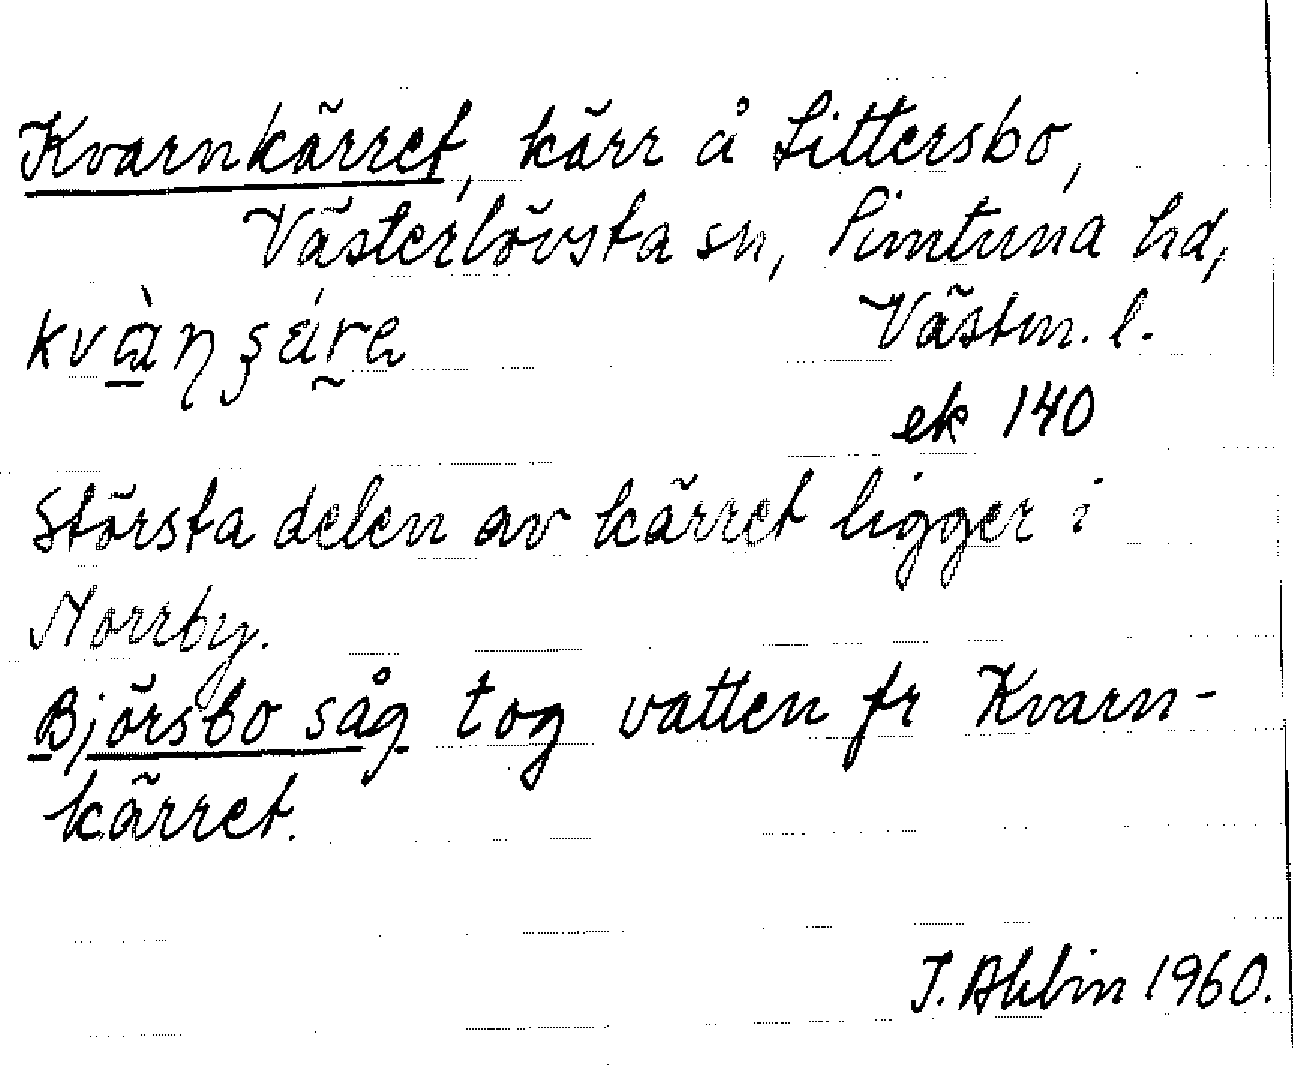 Kvarnkärret, kärr å Sittersbo,
Västerlövsta sn, Simtuna hd,
Västm. l.
ek 140
Största delen av kärret ligger i
Norrby.
Björsbo såg tog vatten fr Kvarn-
kärret.
1960.